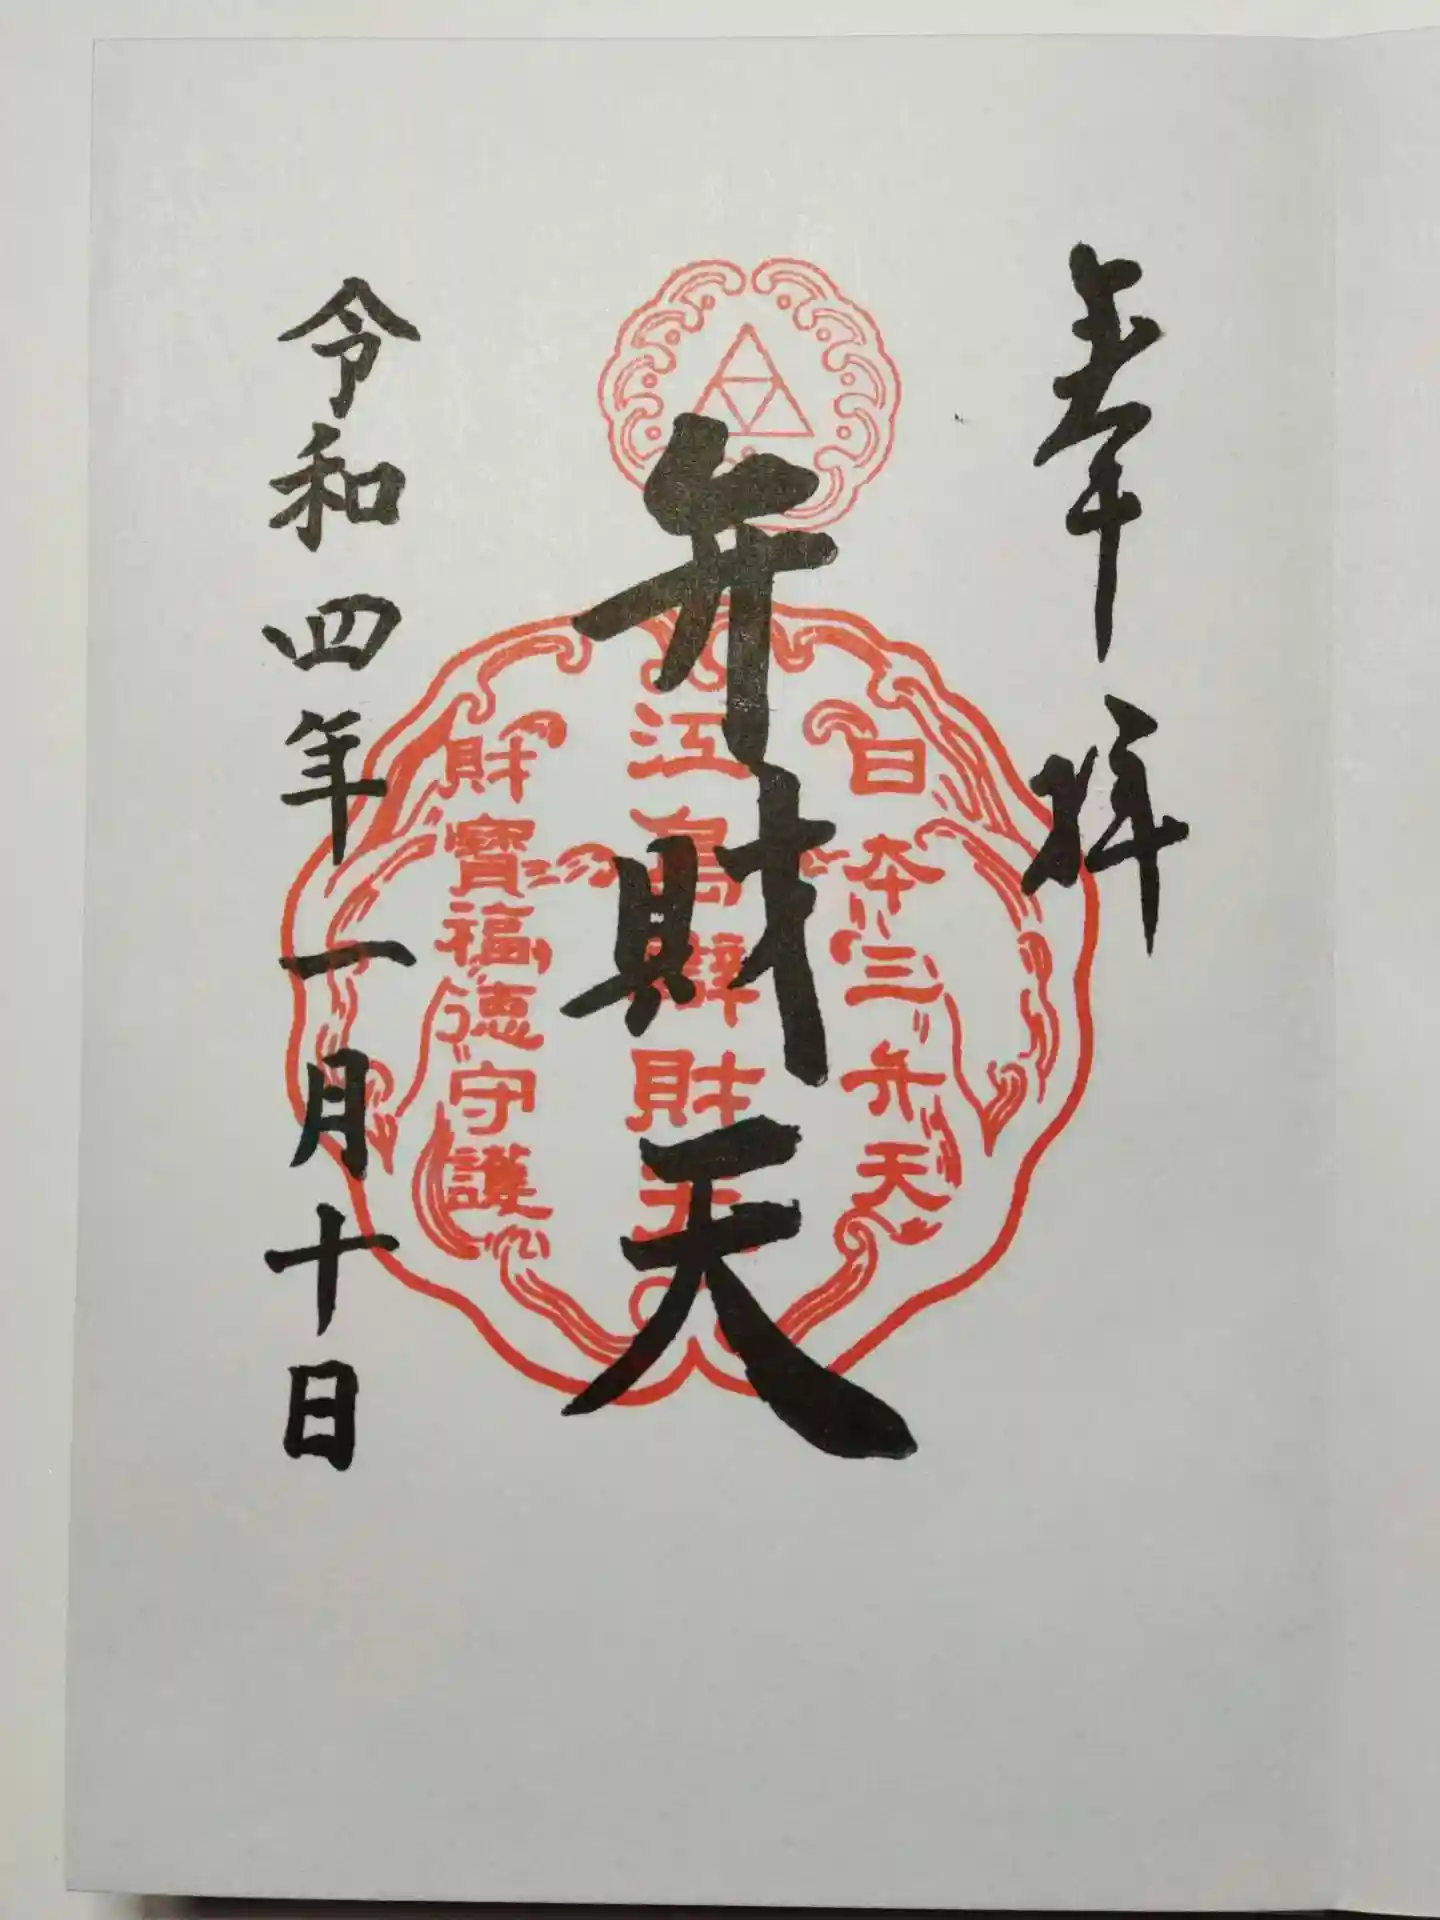 奉拝
日本三弁天
弁財天
江島辨財天
財寶福徳守護
令和四年一月十日